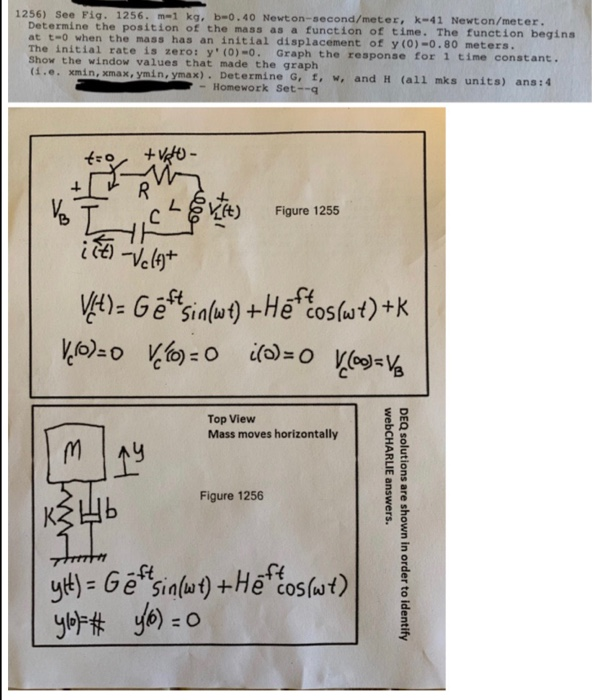 1256) See Fig. 1256. m=1 kg, b=0.40 Newton-second/meter, k=41 Newton/meter.
Determine the position of the mass as a function of time. The function begins
at t=0 when the mass has an initial displacement of y(0)=0.80 meters.
The initial rate is zero: y'(0)=0. Graph the response for 1 time constant.
Show the window values that made the graph
(i.e. xmin,xmax,ymin,ymax). Determine G, f, w, and H (all mks units) ans:4
- Homework Set--q
t=0 +VR(t)-
+
R
VB
C L + VL(t) -
Figure 1255
i(t) -Vc(t)+
Vc(t)= Ge^-ft sin(ωt) +He^-ft cos(ωt)+K
Vc(0)=0 Vc'(0)=0 i(0)=0 Vc(∞)=VB
Top View
Mass moves horizontally
M ↑y
Figure 1256
K b
y(t)= Ge^-ft sin(ωt) +He^-ft cos(ωt)
y(0)=# y'(0)=0
DEQ solutions are shown in order to identify
webCHARLIE answers.